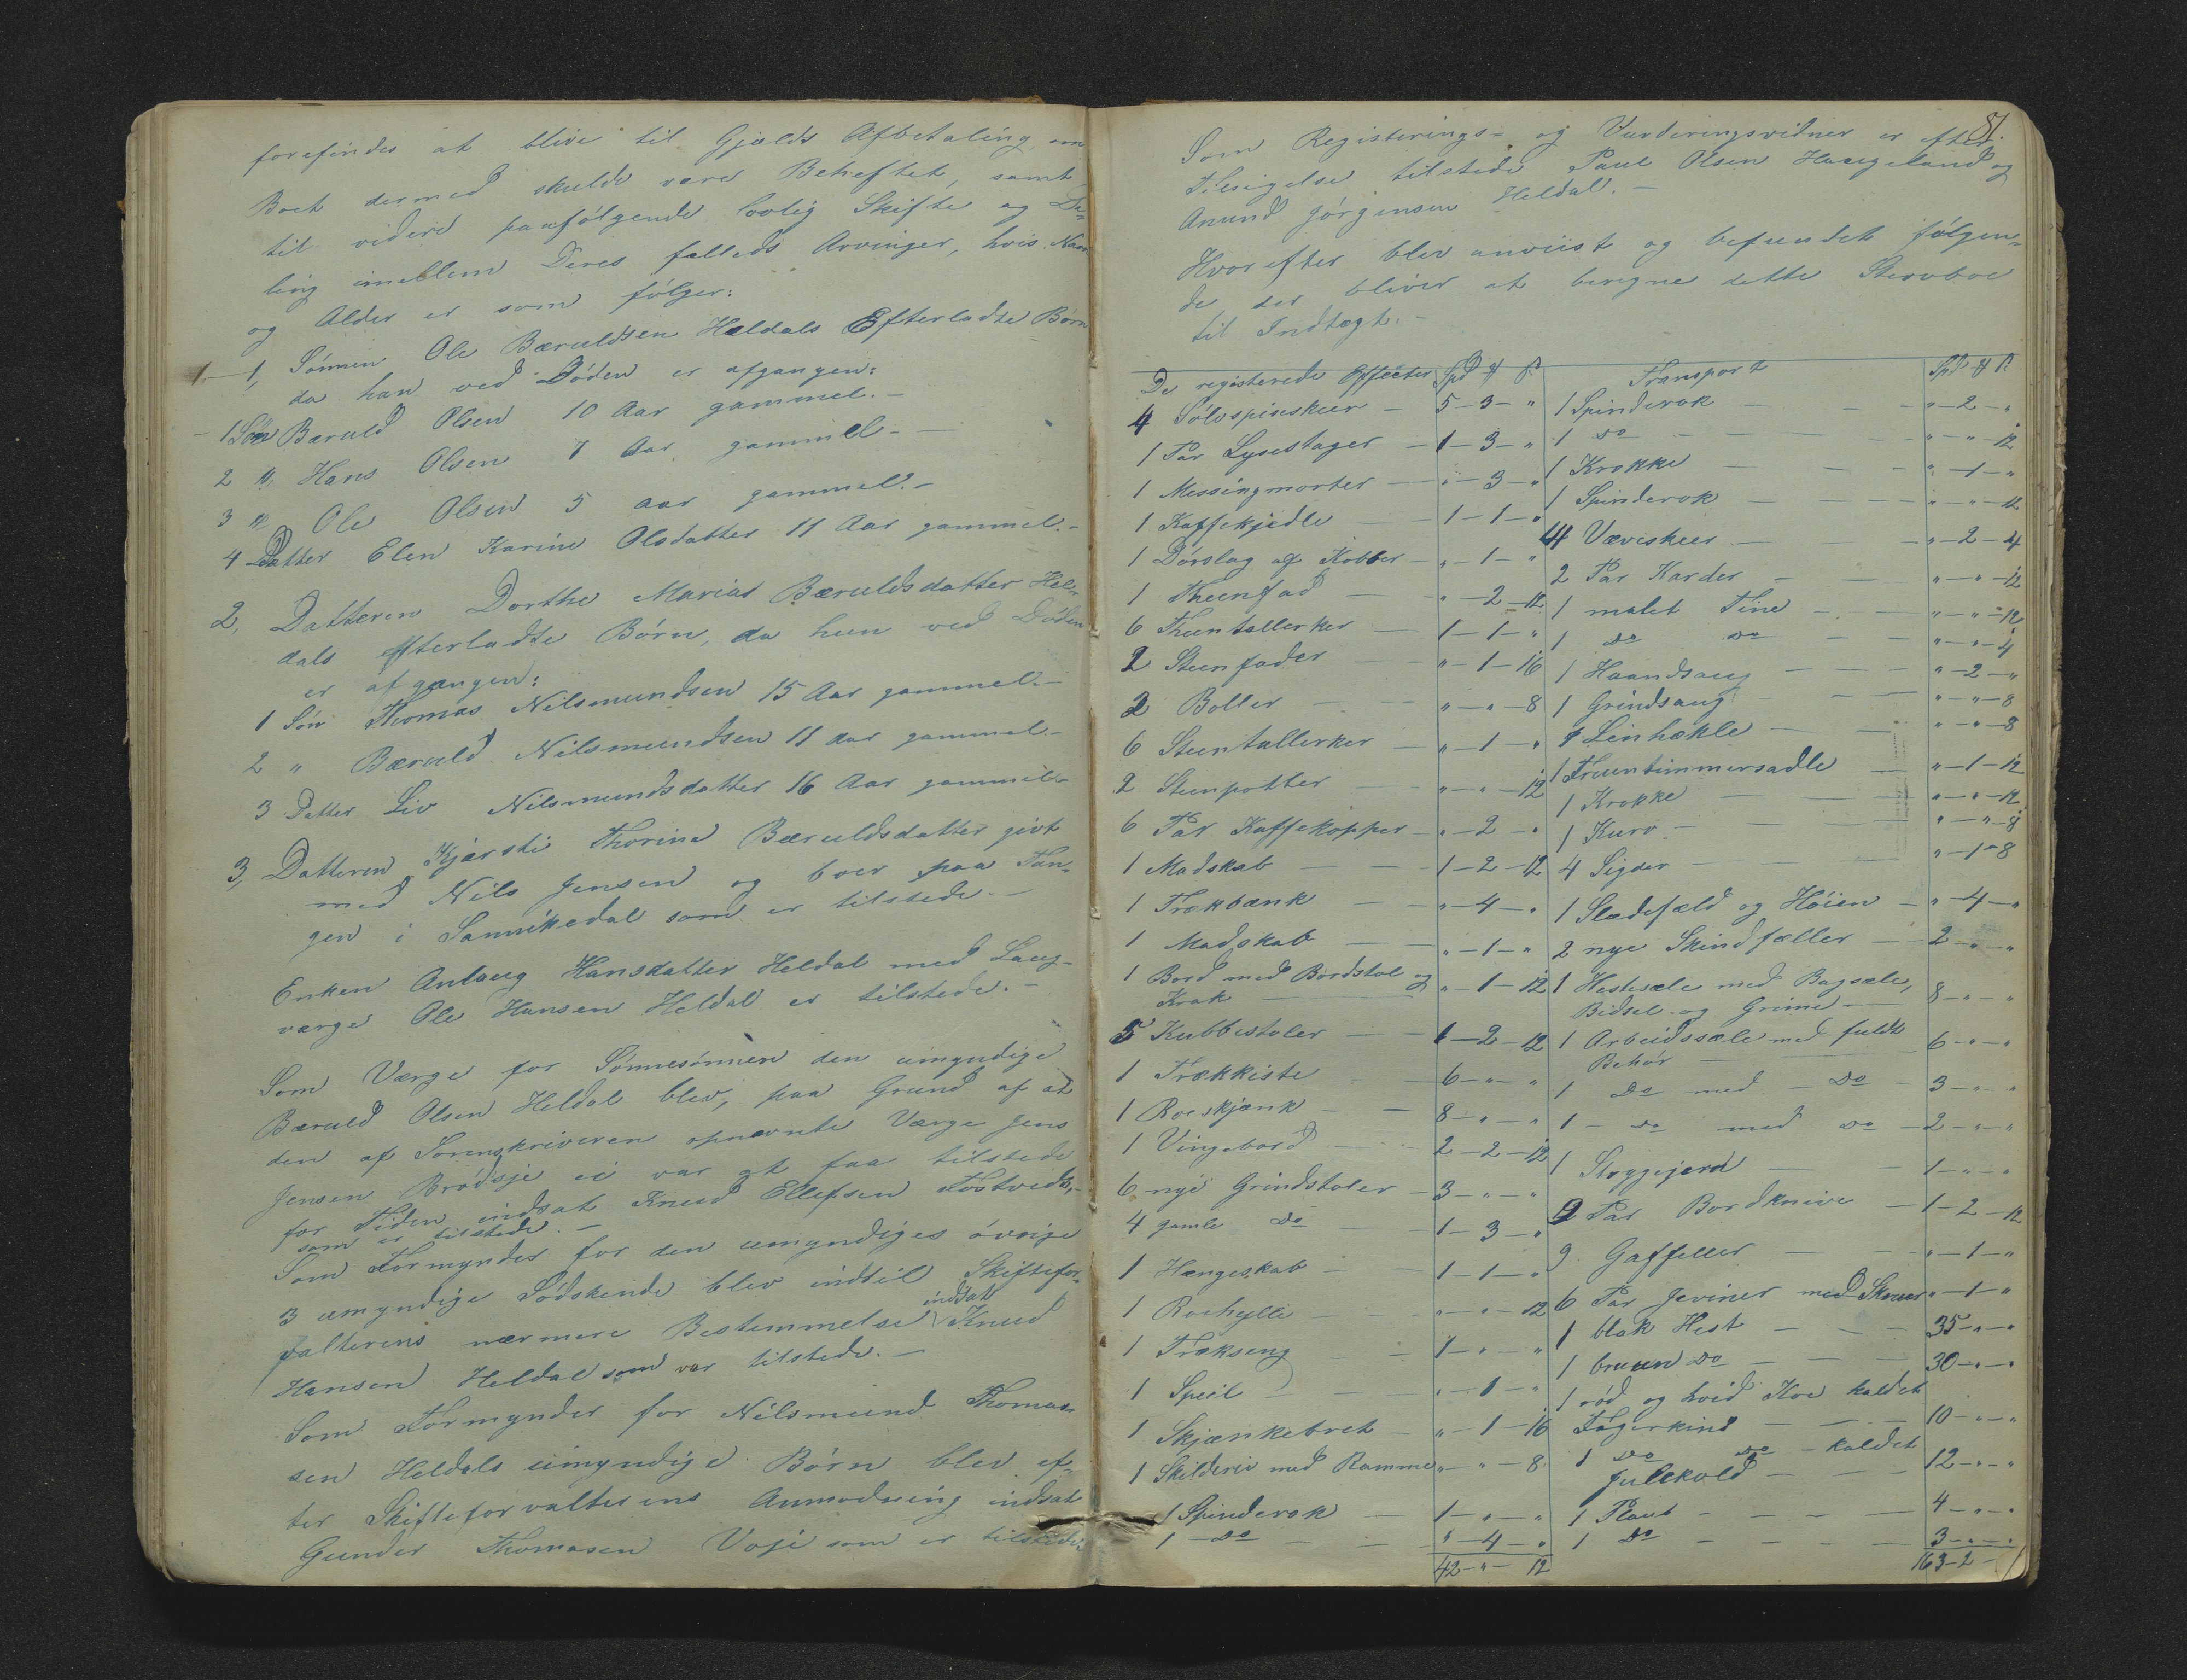 forefindes at blive til Gjælds Afbetaling om
Boet dermed skulde være Beheftet, samt
til videre paafølgende lovlig Skifte og De-
ling imellem Deres fælleds Arvinger, hvis Navn
og Alder er som følger:
1, Sønnen Ole Bæruldsen Heldals Efterladte Børn
da han ved Døden er afgangen:
1 Søn Bæruld Olsen 10 Aar gammel. -
2 " Hans Olsen 7 Aar gammel. -
3 " Ole Olsen 5 aar gammel. -
4 Datter Elen Karine Olsdatter 11 Aar gammel. -
2, Datteren Dorthe Marias Bæruldsdatter Hel-
dals efterladte Børn, da hun ved Døden
er afgangen:
1 Søn Thomas Nilsmundsen 15 Aar gammel. -
2 " Bæruld Nilsmundsen 11 aar gammel -
3 Datter Liv Nilsmundsdatter 16 Aar gammel -
3, Datteren Kjersti Thorine Bæruldsdatter givt
med Nils Jensen og boer paa Tan-
gen i Sannikedal som er tilstede. -
Enken Anlaug Hansdatter Heldal med Laug-
værge Ole Hansen Heldal er tilstede. -
Som Værge for Sønnesønnen den umyndige
Bæruld Olsen Heldal blev, paa Grund af at
den af Sorenskriveren opnævnte Værge Jens
Jensen Brødsje ei var at faa tilstede
for Tiden indsat Knud Ellefsen Tostvedt,
som er tilstede. -
Som Formynder for den umyndiges øvrige
3 umyndige Sødskende blev indtil Skiftefor-
valterens nærmere Bestemmelse indsat Knud
Hansen Heldal som var tilstede. -
Som Formynder for Nilsmund Thomas-
sen Heldals umyndige Børn blev ef-
ter Skifteforvalterens Anmodning indsat
Gunder Thomasen Vaje som er tilstede
81.
Som Registerings- og Vurderingsvidner er efter
Tilsigelse tilstede Paul Olsen Haugeland og
Anund Jørgensen Heldal. -
Hvorefter blev anviist og befundet følgen-
de der bliver at beregne dette Stervboe
til Indtægt. -
De registerede Effecter Spd # ß
4 Sølvspiseskeer - 5 - 3 - "
1 Par Lysestager - 1 - 3 - "
1 Messingmorter - " - 3 - "
1 Kaffekjedle - 1 - 1 - "
1 Dørslag af Kobber - " - 1 - "
1 Theenfad - " - 2 - 12
6 Theentallerker - 1 - 1 - "
2 Steenfader - " - 1 - 16
2 Boller - " - " - 8
6 Steentallerker - " - 1 - "
2 Steenpotter - " - " - 12
6 Par Kaffekopper - " - 2 - "
1 Madskab - 1 - 2 - 12
1 Trækbænk - " - 4 - "
1 Madskab - " - 1 - "
1 Bord med Bordstol og
Krak - " - 1 - 12
5 Kubbestoler - 1 - 2 - 12
1 Trækkiste - 6 - " - "
1 Roeskjænk - 8 - " - "
1 Vingebord - 2 - 2 - 12
6 nye Grindstoler - 3 - " - "
4 gamle Do - 1 - 3 - "
1 Hængeskab - 1 - 1 - "
1 Roehylle - " - " - 12
1 Trækseng - 1 - " - "
1 Speil - " - 1 - "
1 Skjænkebret - " - 1 - 16
1 Skilderie med Ramme " - " - 8
1 Spinderok - 1 - " - "
1 Do - " - 4 - "
42 - " - 12
Transport Spd # ß
1 Spinderok - " - 2 - "
1 Do - " - " - 12
1 Krakke - " - 1 - "
1 Spinderok - " - " - 12
14 Væveskeer - " - 2 - 4
2 Par Karder - " - " - 12
1 malet Tine - " - " - 12
1 Do Do - " - " - 4
1 Haandsaug - " - 2 - "
1 Grindsaug - " - " - 8
1 Linhekle - " - " - 8
1 Fruentimmersadle - " - 1 - 12
1 Krakke - " - " - 12
1 Kurv - " - " - 8
4 Sigder - " - 1 - 8
1 Slædefæld og Høien - " - 4 - "
2 nye Skindfæller - 2 - " - "
1 Hestesæle med Bagsæle,
Bidsel og Grime - 8 - " - "
1 Arbeidssæle med fuldt
Behør - 6 - " - "
1 Do med - Do - 3 - " - "
1 - Do med Do - 2 - " - "
1 Støggejern - 1 - " - "
9 Par Bordknive - 1 - 2 - 12
9 Gaffeller - " - 1 - "
6 Par Jeviner med Skruer " - 1 - "
1 blak Hest - 35 - " - "
1 bruun Do - 30 - " - "
1 rød og hvid Koe kaldet
Fagerkind - 10 - " - "
1 Do Do - kaldet
Julekold - 12 - " - "
1 Plaut - 4 - " - "
1 Do - 3 - " - "
163 - 2 -